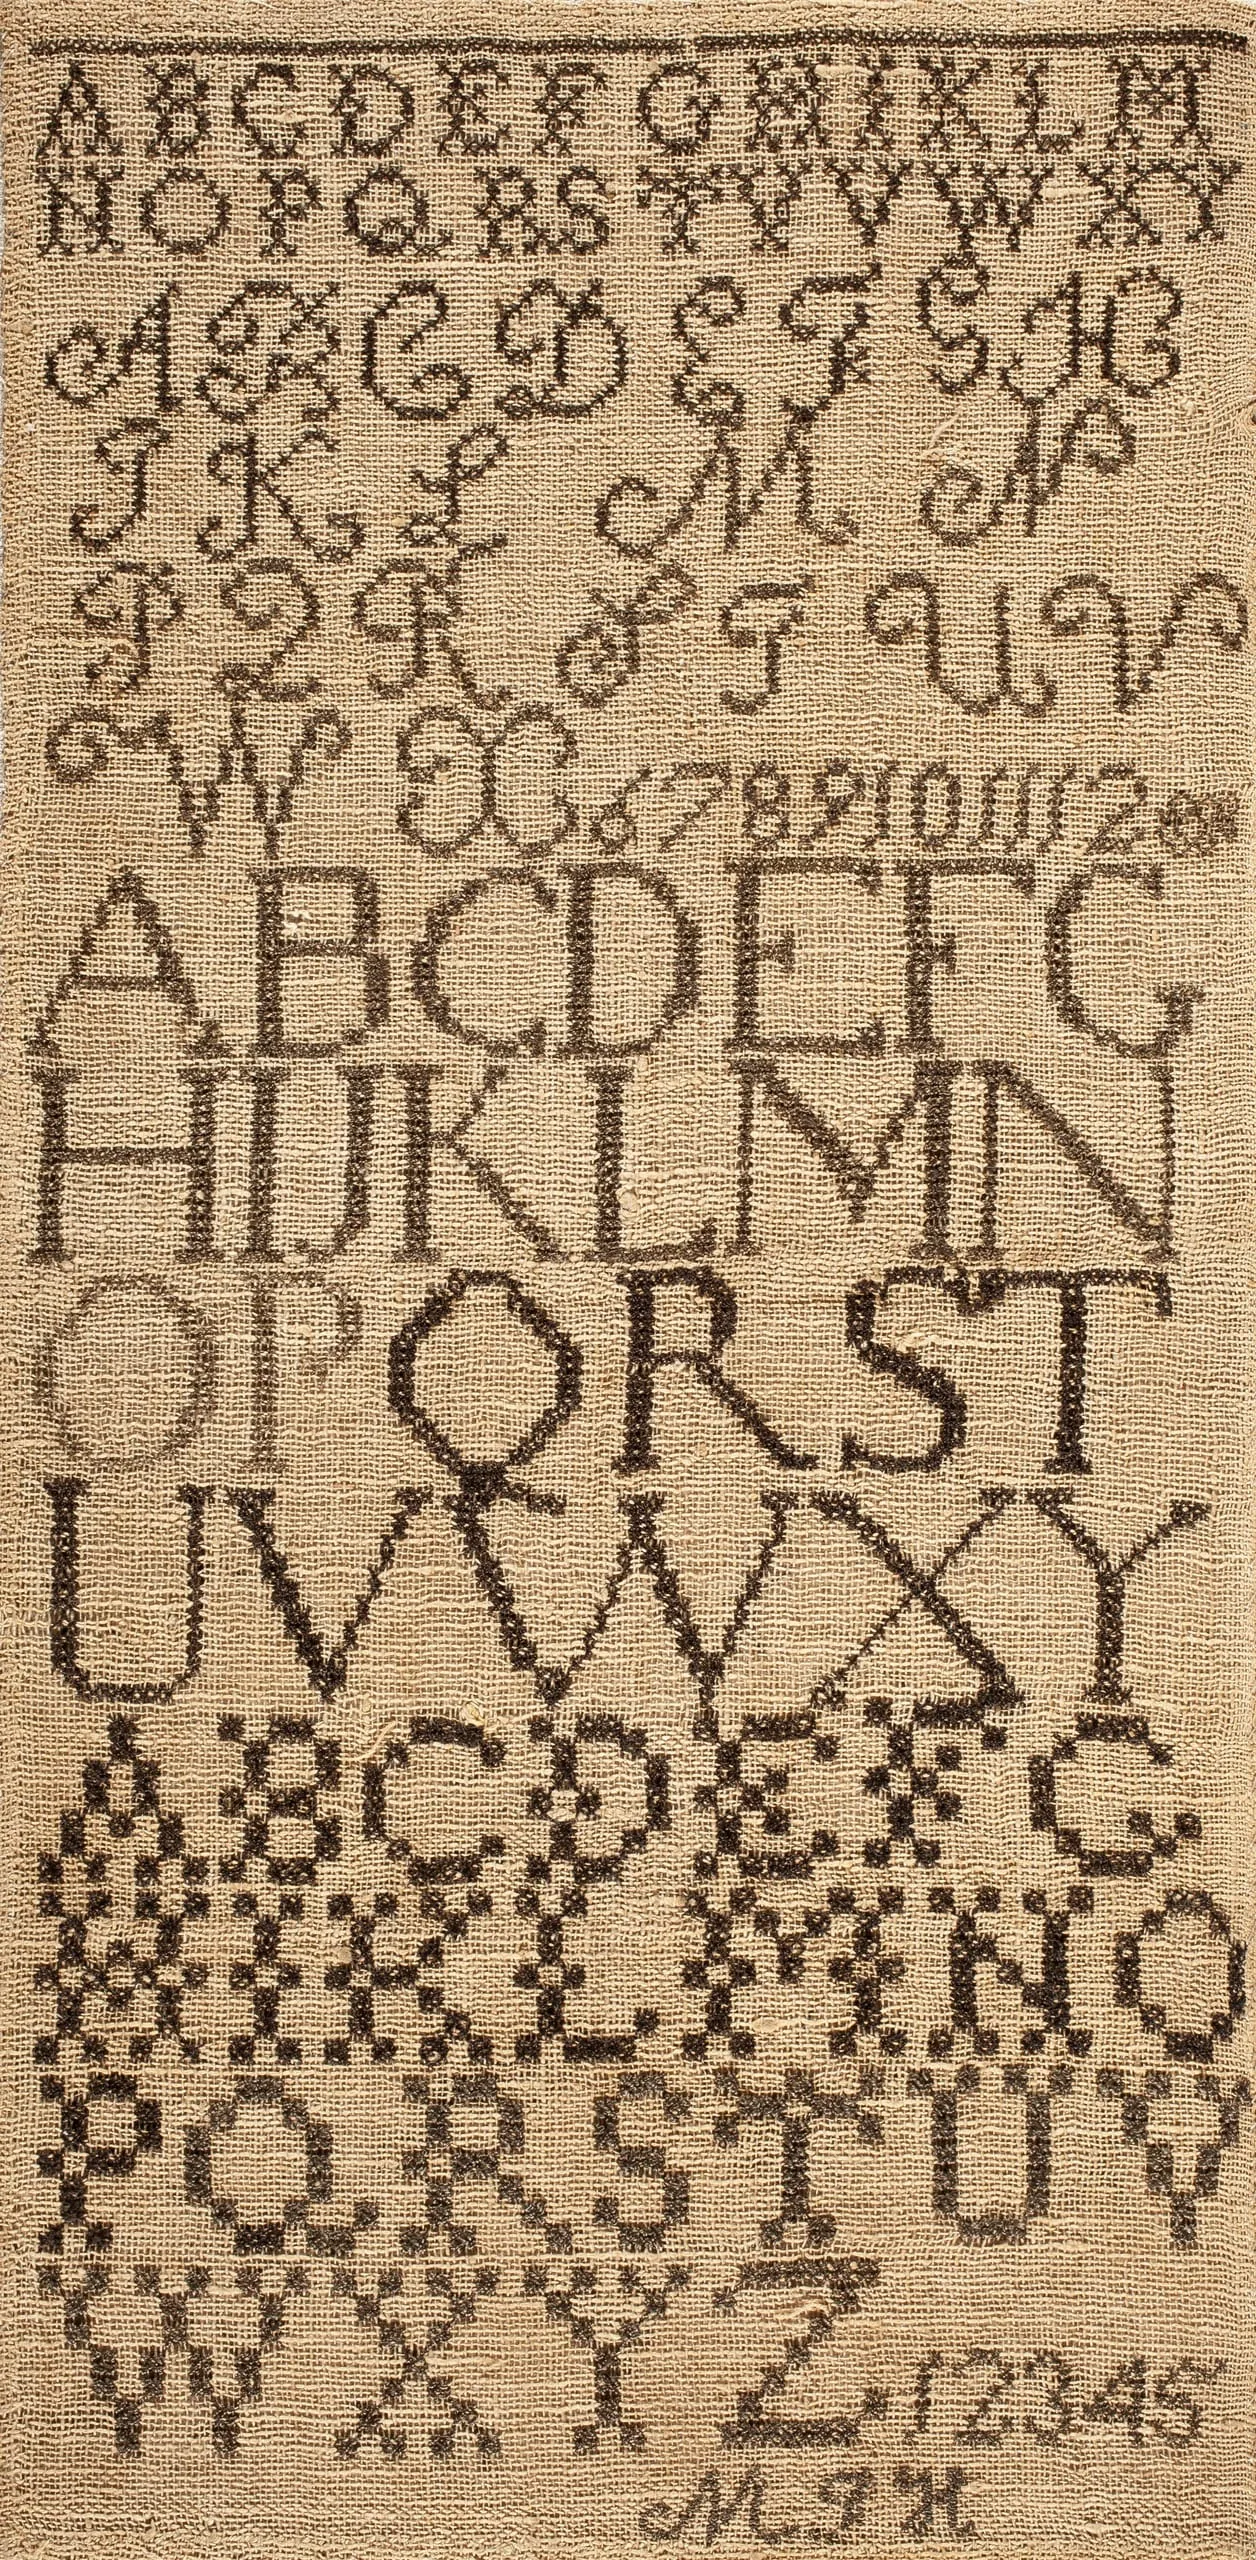 A B C D E F G H I K L M
N O P Q R S T U V W X Y
A B C D E F G H
I K L M N
P Q R S T U V
W X 6 7 8 9 10 11 12
A B C D E F G
H I J K L M N
O P Q R S T
U V W X Y
A B C D E F G
H I K L M N O
P Q R S T U V
W X Y Z 1 2 3 4 5
M J H